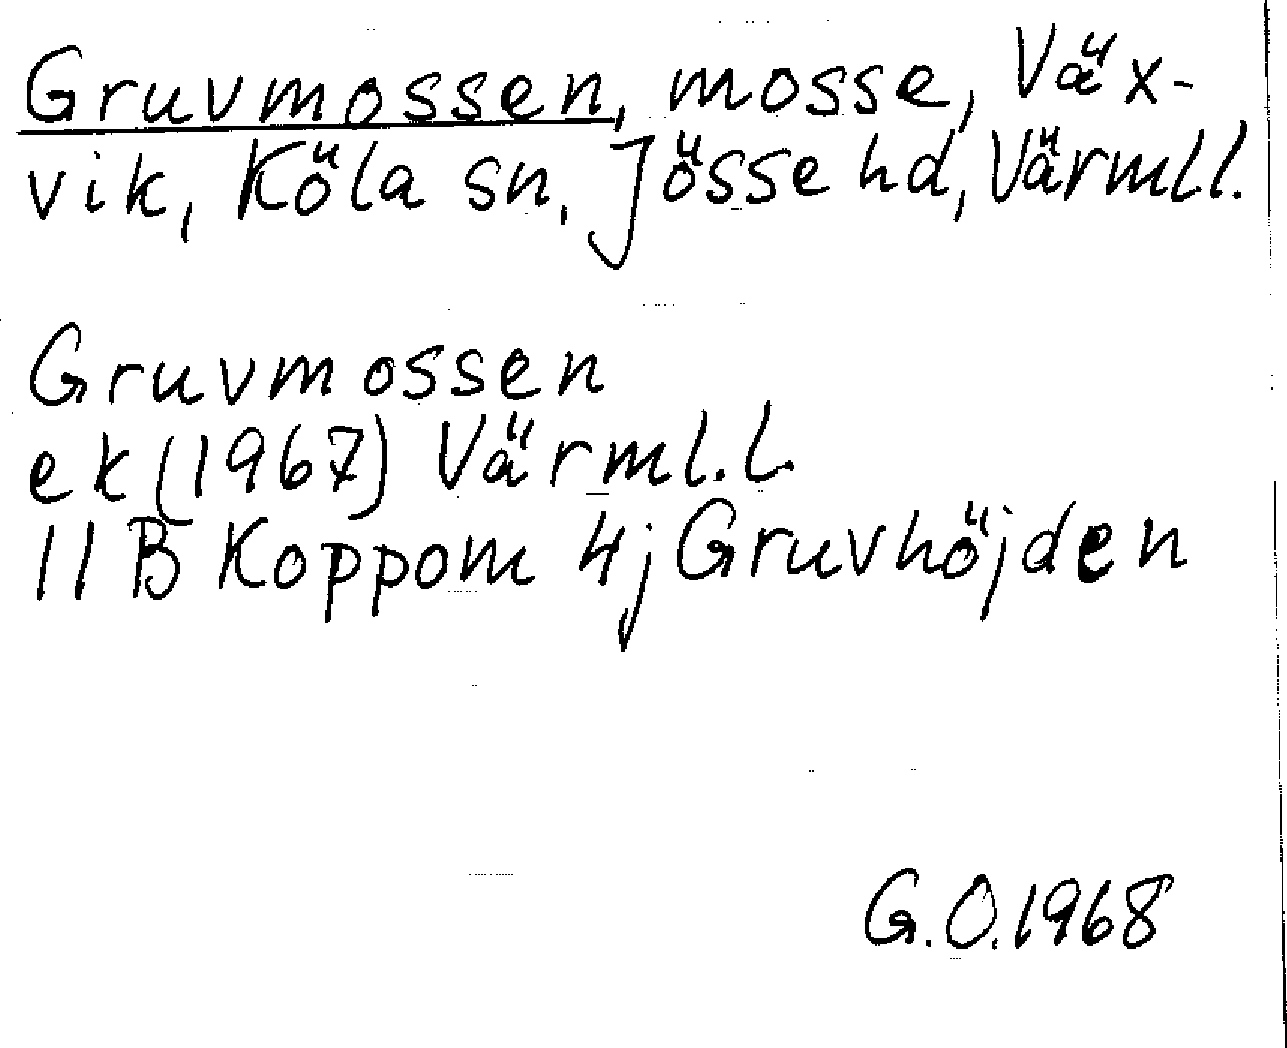 Gruvmossen, mosse, Väx-
vik, Köla sn, Jösse hd, Värml l.
Gruvmossen
ek (1967) Värml. l.
11 B Koppom 4j Gruvhöjden
G.O. 1968